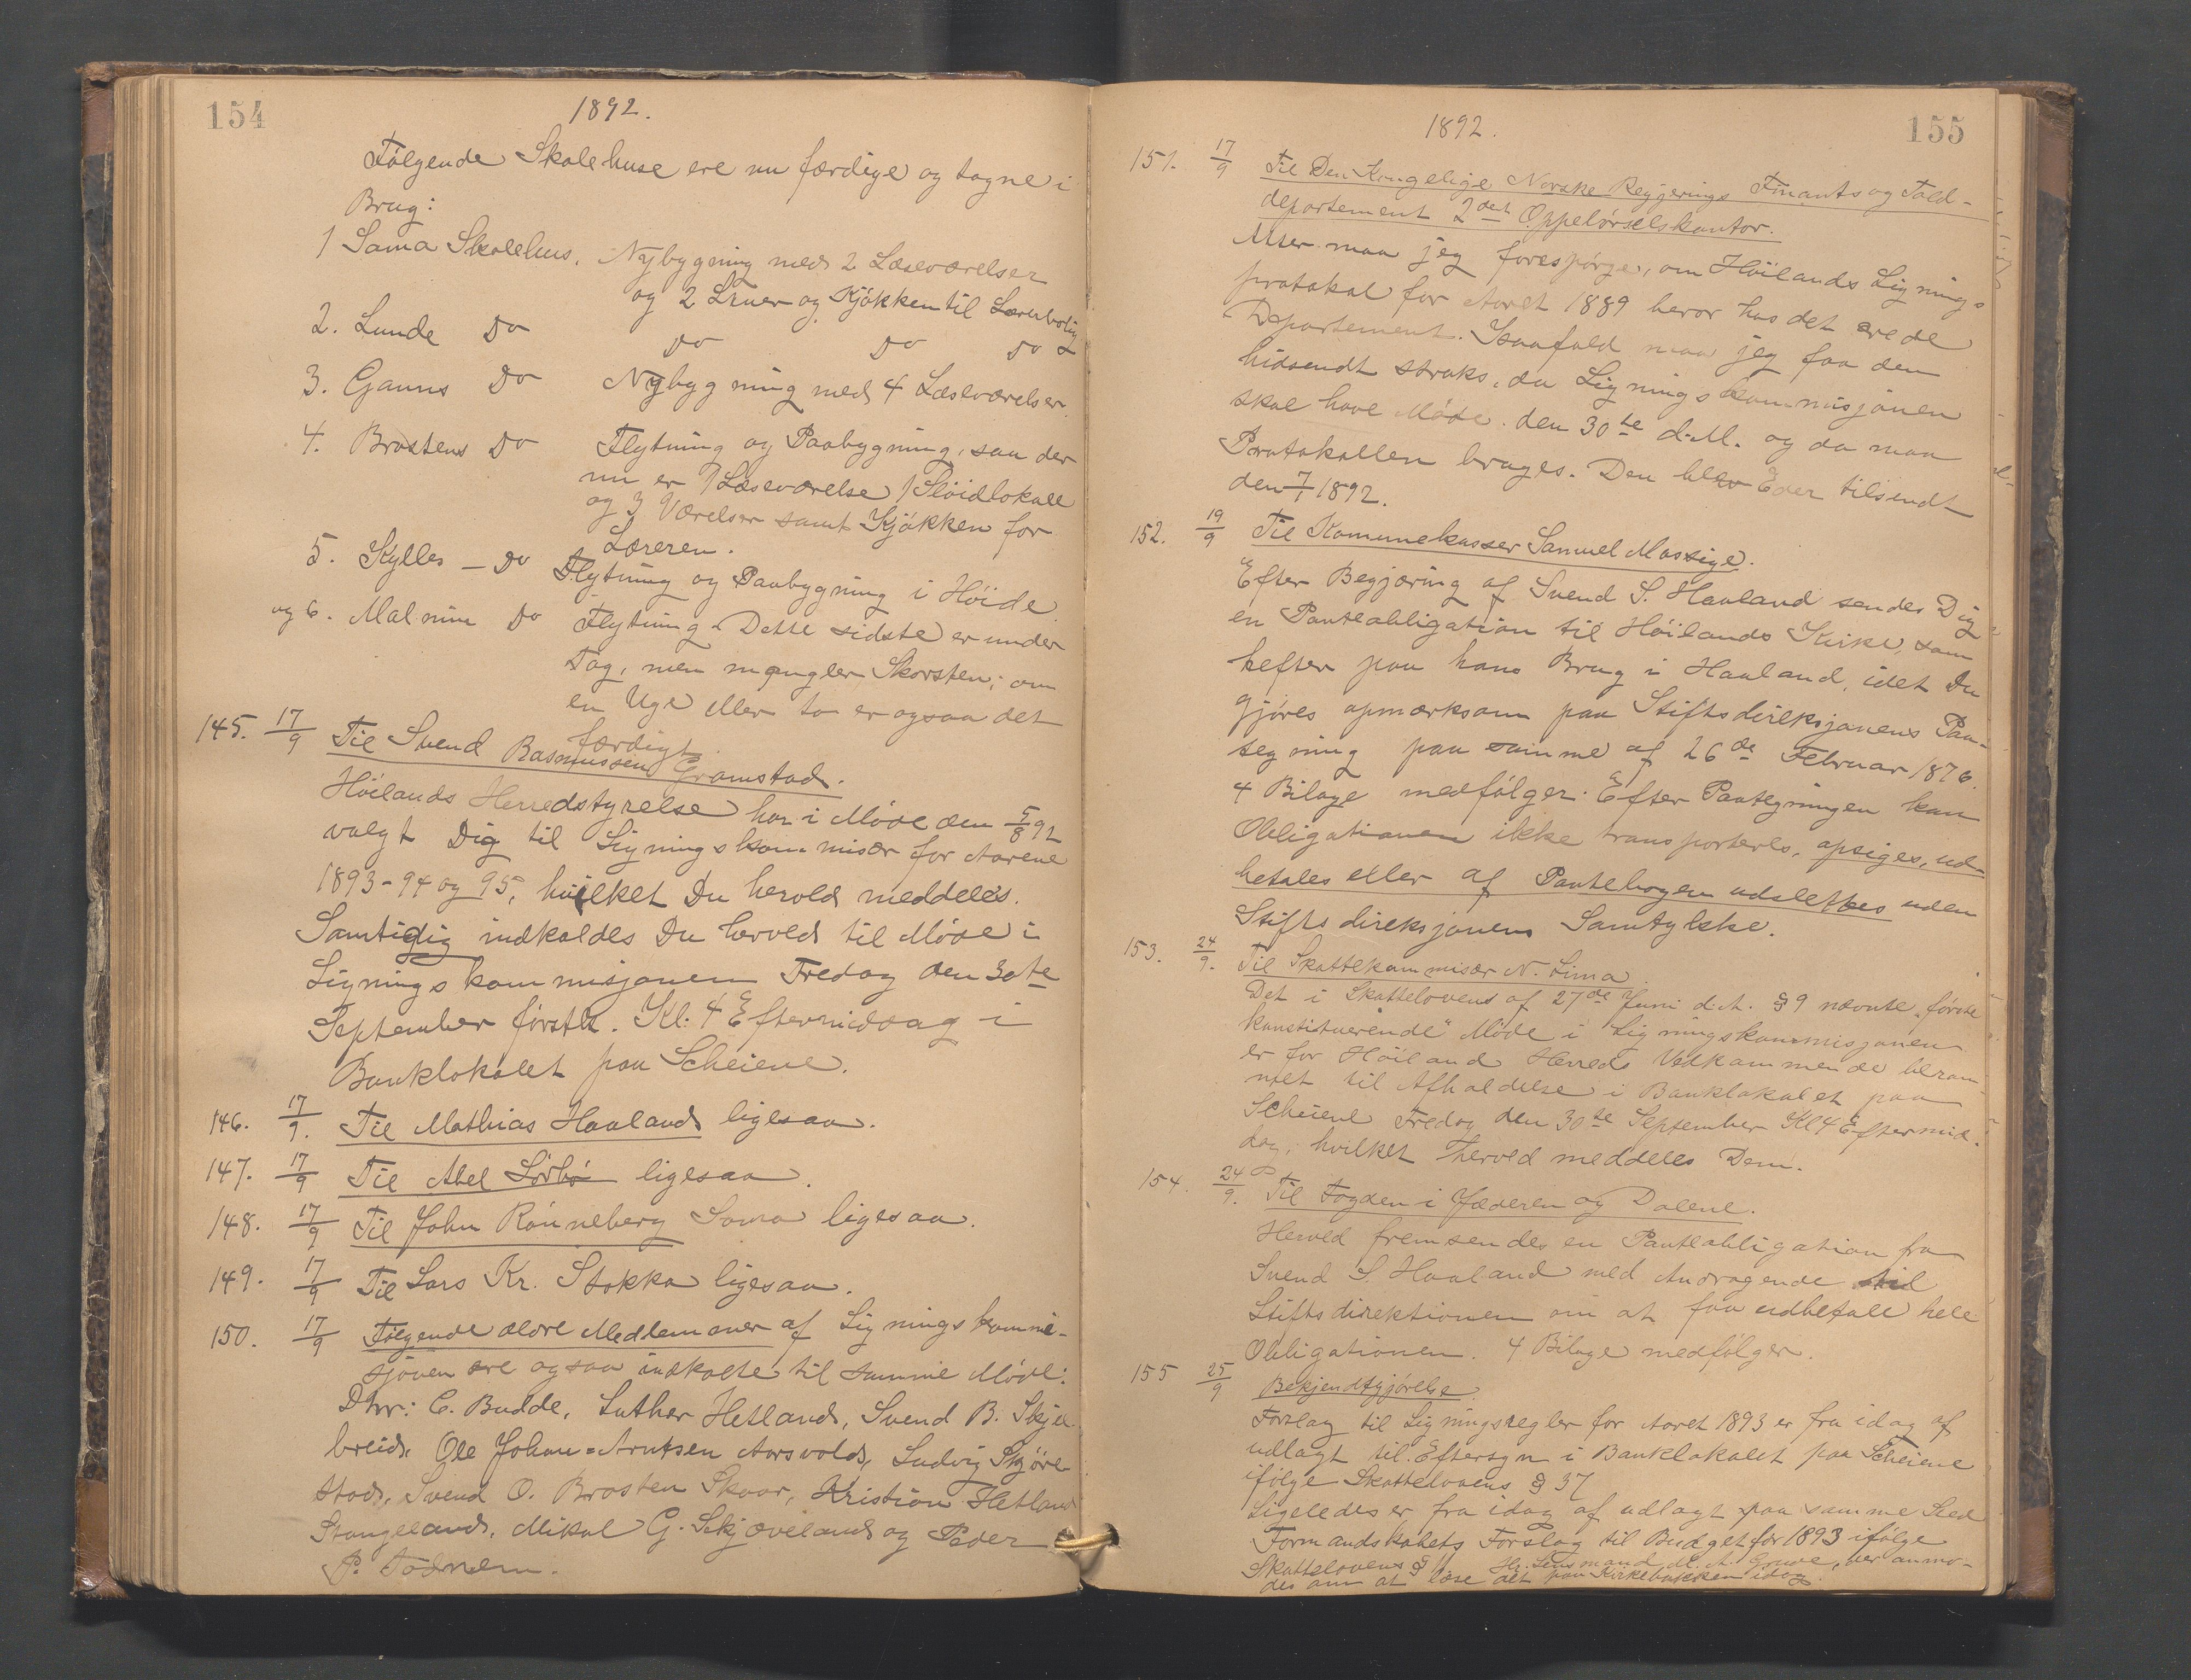 154
1892.
Følgende Skolehuse ere nu færdige og tagne i
Brug:
1 Soma Skolehus. Nybygning med 2 Læseværelser
og 2 Stuer og Kjøkken til Lærerbolig
2. Lunde Do Do Do Do
3. Ganns Do Nybygning med 4 Læseværelser.
4. Brostens Do Flytning og Paabygning, saa der
nu er 1 Læseværelse 1 Sløidlokale
og 3 Værelser samt Kjøkken for
Læreren.
5. Kylles – Do Flytning og Paabygning i Høide
og 6. Malmim Do Flytning. Dette sidste er under
Tag, men mangler Skorsten; om
en Uge eller to er ogsaa det
færdigt.
145. 17/9 Til Svend Rasmussen Gramstad.
Höilands Herredstyrelse har i Møde den 5/8 92
valgt Dig til Ligningskommisær for Aarene
1893-94 og 95, hvilket Du herved meddeles.
Samtidig indkaldes Du herved til Møde i
Ligningskommisjonen Fredag den 30te
September førstk. Kl: 4 Eftermiddag i
Banklokalet paa Scheiene.
146. 17/9. Til Mathias Haaland ligesaa.
147. 17/9 Til Abel Sörbö ligesaa.
148. 17/9 Til John Rönneberg Soma ligesaa.
149. 17/9 Til Lars Kr. Stokka ligesaa.
150. 17/9 Følgende ældre Medlemmer af Ligningskommi-
sjonen ere ogsaa indkaldte til samme Møde:
Dhrr: C. Budde, Luther Hetland, Svend B. Skjæl
breid, Ole Johan Arntsen Aarsvold, Ludvig Skjöre
stad, Svend O. Brosten Skaar, Kristian Hetland
Stangeland, Mikal G. Skjæveland og Peder
P. Todnem.
155
1892.
151. 17/9 Til Den Kongelige Norske Regjerings Finants og Told-
departement 2det Oppebørselskontor.
Atter maa jeg forespörge, om Höilands Lignings
protokol for Aaret 1889 beror hos det ærede
Departement. Isaafald maa jeg faa den
hidsendt straks, da Ligningskommisjonen
skal have Møde den 30te d.M. og da maa
Protokollen bruges. Den blev Eder tilsendt
den 7/1 1892.
152. 19/9 Til Komunekasser Samuel Mossige.
Efter Begjæring af Svend S. Haaland sendes Dig
en Panteobligation til Höilands Kirke, som
hefter paa hans Brug i Haaland, idet Du
gjøres opmærksom paa Stiftsdireksjonens Paa-
tegning paa samme af 26de Februar 1876.
4 Bilage medfølger. Efter Paategningen kan
Obligationen ikke transporteres, opsiges, ud-
betales eller af Pantebogen udslettes uden
Stiftsdireksjonens Samtykke.
153. 24/9. Til Skattekommisær N. Lima
Det i Skattelovens af 27de Juni d.A. § 9 nævnte „første
konstituerende" Møde i Ligningskommisjonen
er for Höiland Herreds Vedkommende beram-
met til Afholdelse i Banklokalet paa
Scheiene Fredag den 30te September Kl 4 Eftermid-
dag, hvilket herved meddeles Dem.
154. 24/9. Til Fogden i Jæderen og Dalene.
Herved fremsendes en Panteobligation fra
Svend S. Haaland med Andragende til
Stiftsdirektionen om at faa udbetale hele
Obligationen. 4 Bilage medfølger.
155 25/9 Bekjendtgjørelse.
Forslag til Ligningsregler for Aaret 1893 er fra idag af
udlagt til Eftersyn i Banklokalet paa Scheiene
ifölge Skattelovens § 37
Ligeledes er fra idag af udlagt paa samme Sted
Formandskabets Forslag til Budget for 1893 ifölge
Skattelovens § Hr. Lensmand M. A. Grude, ver anmo-
des om at læse det paa Kirkebakken idag.